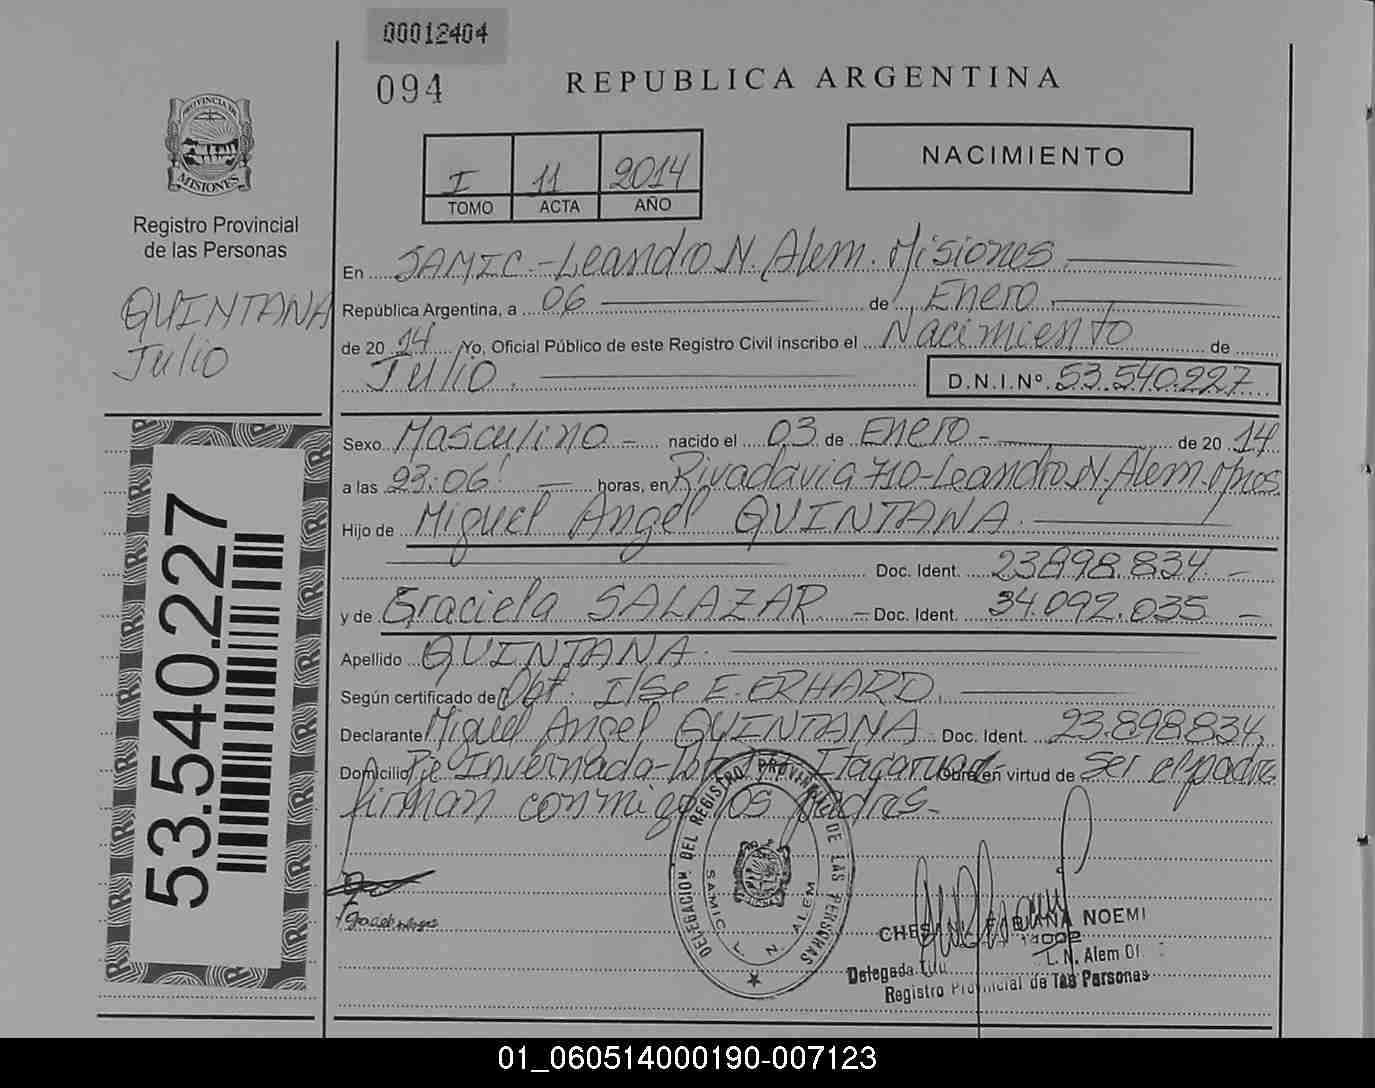 00012404
094
REPUBLICA ARGENTINA
PROVINCIA DE
MISIONES
Registro Provincial
de las Personas
I 11 2014
TOMO ACTA AÑO
NACIMIENTO
QUINTANA
Julio
53.540.227
En SAMIC.-Leandro N. Alem. Misiones
República Argentina, a 06 de Enero
de 20 14 Yo, Oficial Público de este Registro Civil inscribo el Nacimiento de
Julio. D.N.I.Nº 53.540.227
Sexo Masculino - nacido el 03 de Enero - de 20 14
a las 23:06' horas, en Rivadavia 710-Leandro N. Alem. Mnes
Hijo de Miguel Angel QUINTANA
Doc. Ident. 23.898.834 -
y de Graciela SALAZAR - Doc. Ident. 34.092.035 -
Apellido QUINTANA
Según certificado de Obt. Ilse E. ERHARD
Declarante Miguel Angel QUINTANA Doc. Ident. 23.898.834
Domicilio Invernada Itacaruaré Obra en virtud de ser el padre
firman conmigo los padres-
DELEGACION DEL REGISTRO PROVINCIAL DE LAS PERSONAS
SAMIC L. N. ALEM
FABIANA NOEMI
L. N. Alem
Delegada
Registro Provincial de las Personas
01_060514000190-007123